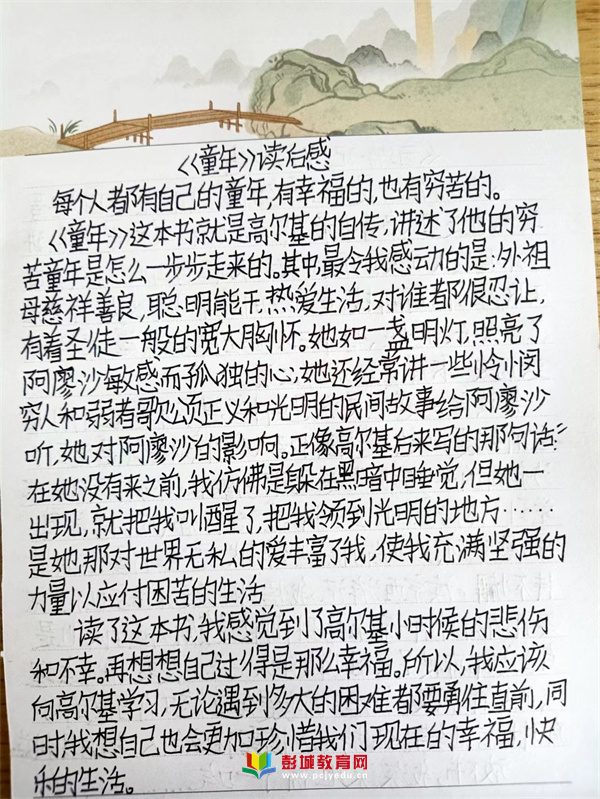 《童年》读后感
每个人都有自己的童年,有幸福的,也有穷苦的。
《童年》这本书就是高尔基的自传,讲述了他的穷
苦童年是怎么一步步走来的。其中,最令我感动的是:外祖
母慈祥善良,聪明能干,热爱生活,对谁都很忍让,
有着圣徒一般的宽大胸怀。她如一盏明灯,照亮了
阿廖沙敏感而孤独的心;她还经常讲一些怜悯
穷人和弱者歌颂正义和光明的民间故事给阿廖沙
听,她对阿廖沙的影响。正像高尔基后来写的那句话:“
在她没有来之前,我仿佛是躲在黑暗中睡觉,但她一
出现,就把我叫醒了,把我领到光明的地方……
是她那对世界无私的爱丰富了我,使我充满坚强的
力量以应付困苦的生活
读了这本书,我感觉到了高尔基小时候的悲伤
和不幸。再想想自己过得是那么幸福。所以,我应该
向高尔基学习,无论遇到多大的困难都要勇往直前,同
时,我想自己也会更加珍惜我们现在的幸福,快
乐的生活。
彭城教育网
www.pcjyedu.cn